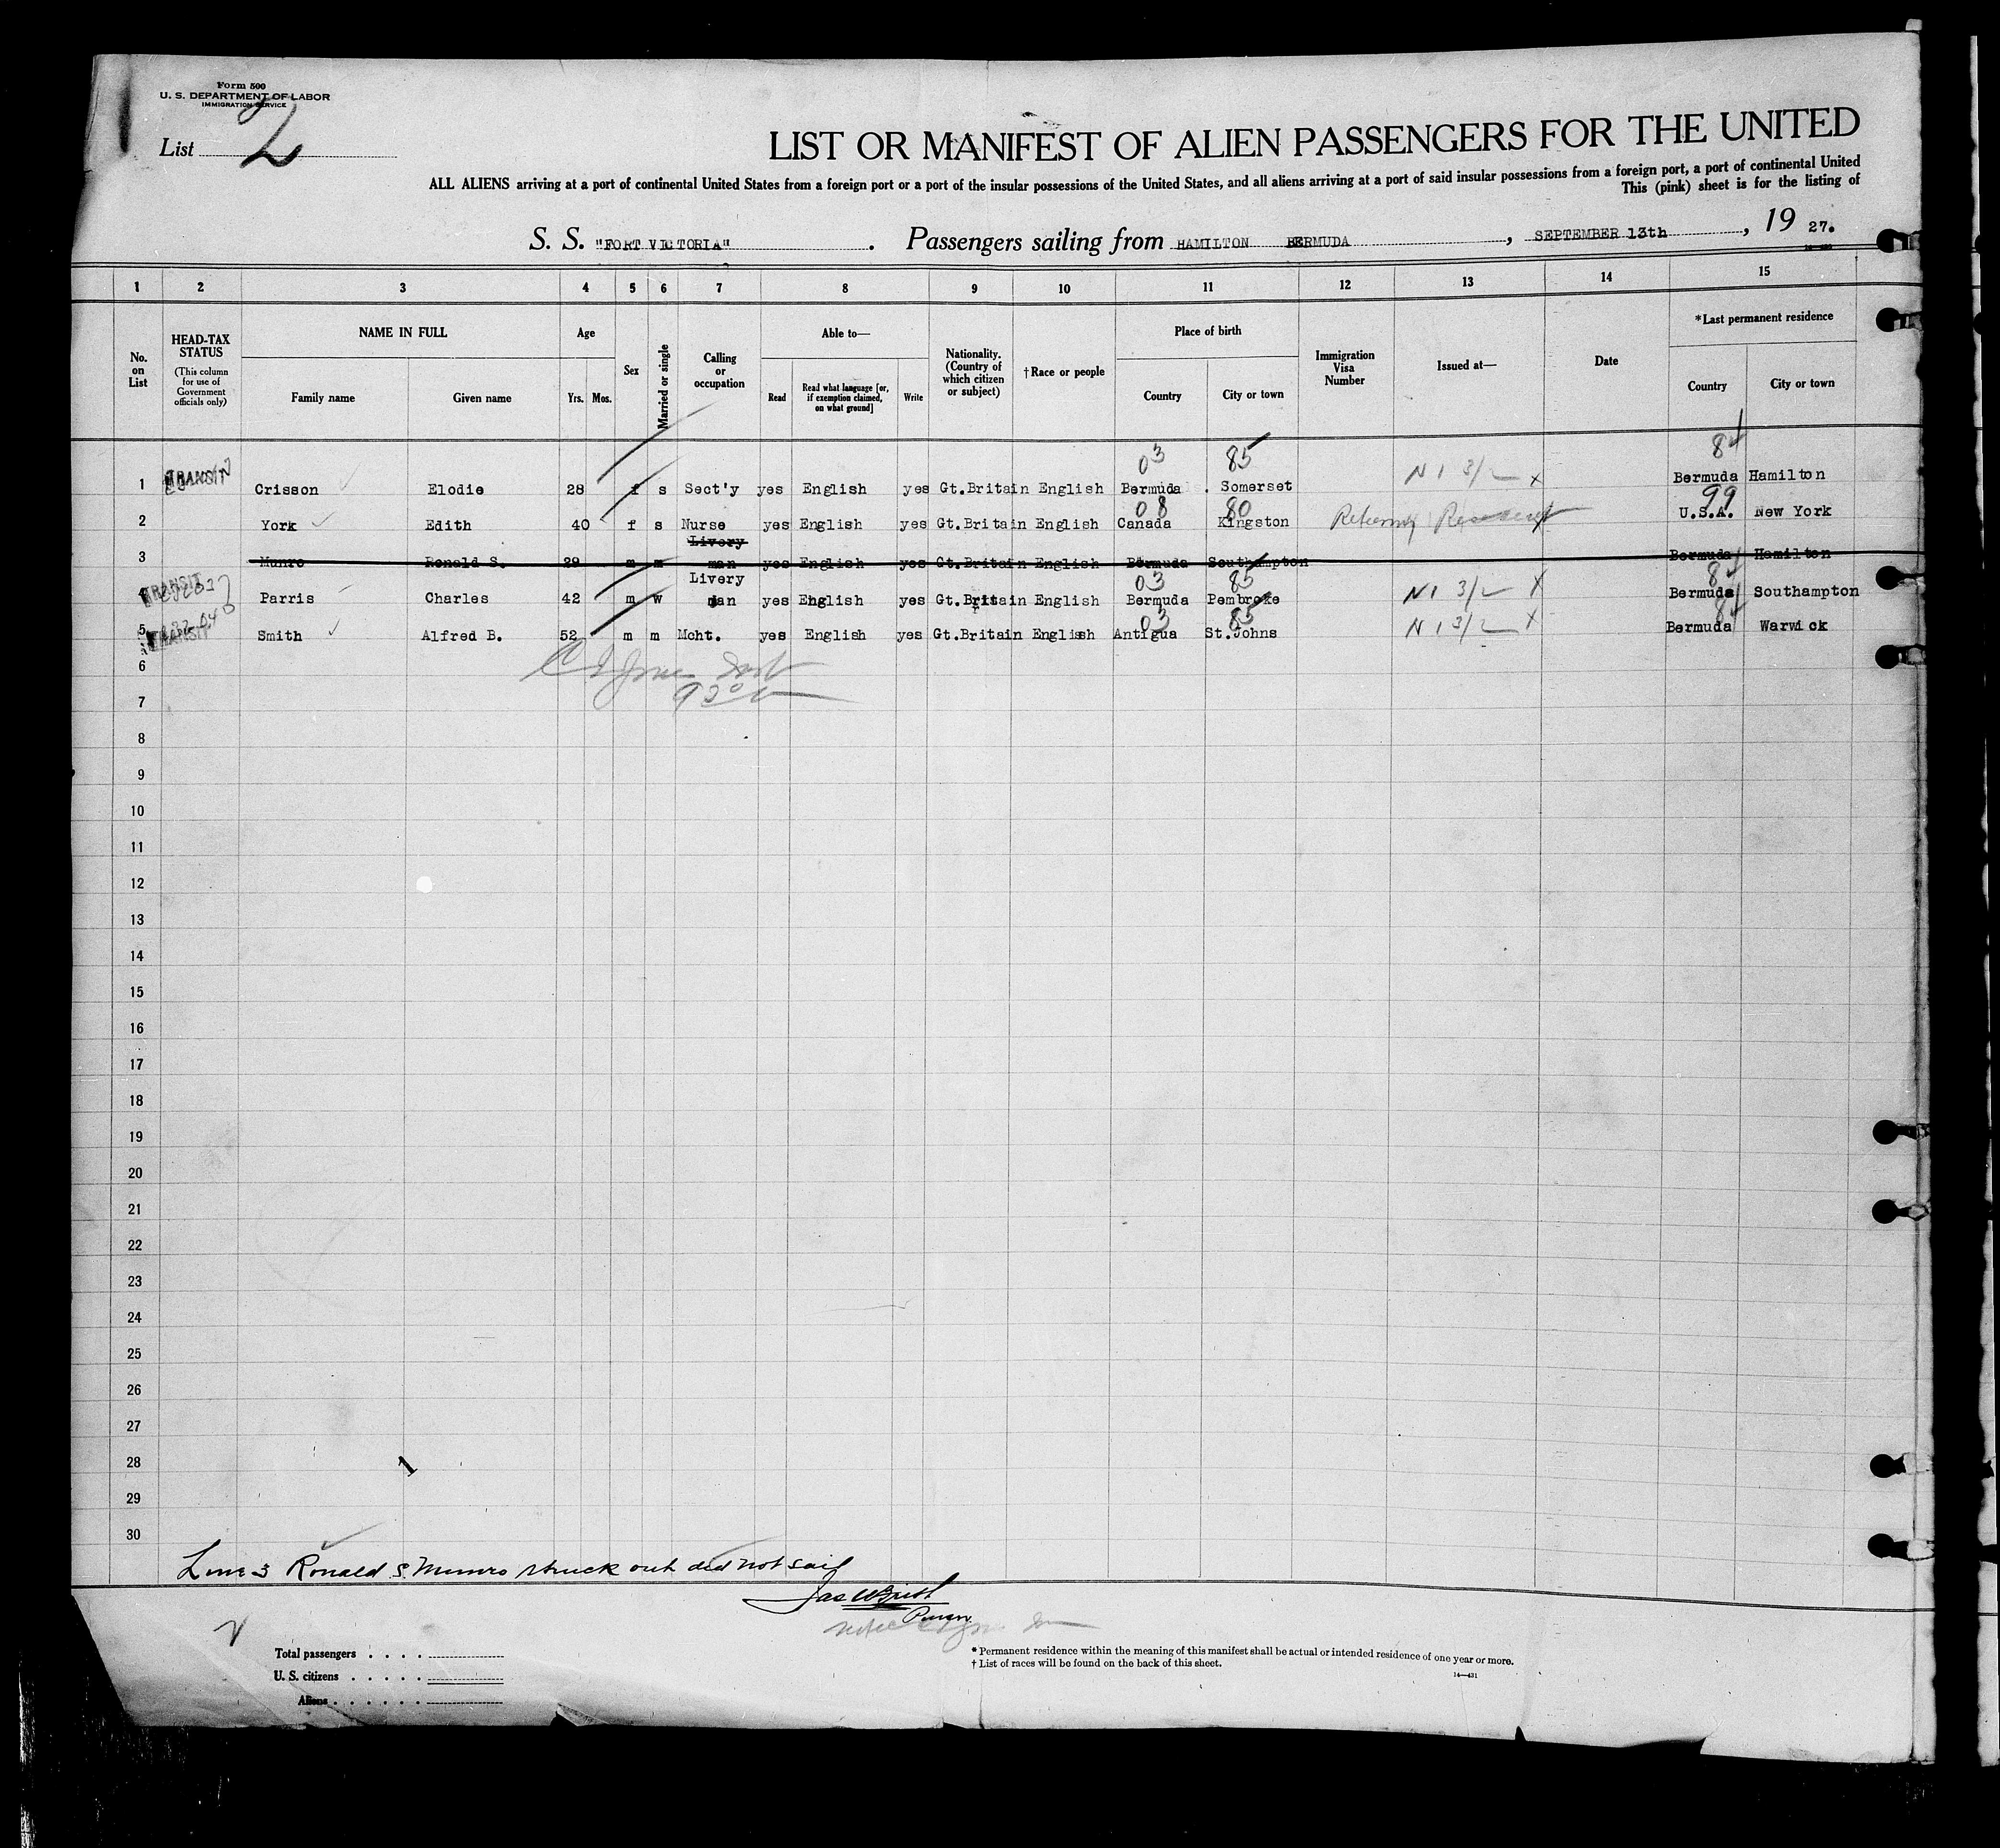 Form 500
U. S. DEPARTMENT OF LABOR
IMMIGRATION SERVICE
List 2
LIST OR MANIFEST OF ALIEN PASSENGERS FOR THE UNITED
ALL ALIENS arriving at a port of continental United States from a foreign port or a port of the insular possessions of the United States, and all aliens arriving at a port of said insular possessions from a foreign port, a port of continental United
This (pink) sheet is for the listing of
S. S. "FORT VICTORIA" . Passengers sailing from HAMILTON BERMUDA , SEPTEMBER 13th , 19 27.
1 2 3 4 5 6 7 8 9 10 11 12 13 14 15
No. on List
HEAD-TAX STATUS
(This column for use of Government officials only)
NAME IN FULL
Family name Given name
Age
Yrs. Mos.
Sex
Married or single
Calling or occupation
Able to—
Read
Read what language [or, if exemption claimed, on what ground]
Write
Nationality. (Country of which citizen or subject)
†Race or people
Place of birth
Country City or town
Immigration Visa Number
Issued at—
Date
*Last permanent residence
Country City or town
03 85 84
1 TRANSIT Crisson Elodie 28 f s Sect'y yes English yes Gt.Britain English Bermuda . Somerset N I 3/2 x Bermuda Hamilton
08 80 99
2 York Edith 40 f s Nurse yes English yes Gt.Britain English Canada Kingston Returning Resident U.S.A. New York
Livery
3 Munro Ronald S. 29 m m man yes English yes Gt.Britain English Bermuda Southampton Bermuda Hamilton
Livery
03 85 84
4 TRANSIT Parris Charles 42 m w man yes English yes Gt.Britain English Bermuda Pembroke N I 3/2 x Bermuda Southampton
03 85 84
5 TRANSIT Smith Alfred B. 52 m m Mcht. yes English yes Gt.Britain English Antigua St.Johns N I 3/2 x Bermuda Warwick
6
7
8
9
10
11
12
13
14
15
16
17
18
19
20
21
22
23
24
25
26
27
28
29
30
Line 3 Ronald S. Munro struck out did not sail
Purser
Total passengers . . . .
U. S. citizens . . . . .
Aliens . . . . . .
* Permanent residence within the meaning of this manifest shall be actual or intended residence of one year or more.
† List of races will be found on the back of this sheet.
14—431